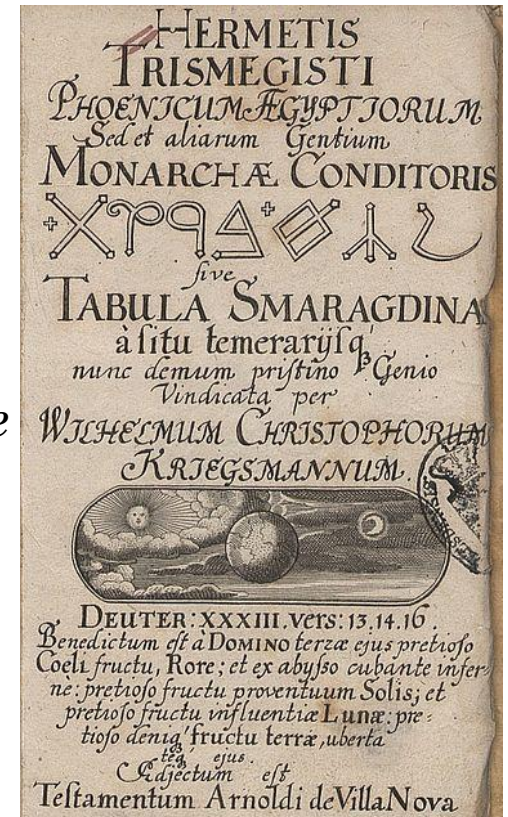 HERMETIS
TRISMEGISTI
PHOENICUM ÆGYPTIORUM
Sed et aliarum Gentium
MONARCHÆ CONDITORIS
sive
TABULA SMARAGDINA
à situ temerarijsq́
nunc demum pristino Genio
Vindicata per
WILHELMUM CHRISTOPHORUM
KRIEGSMANNUM.
e
DEUTER: XXXIII. vers: 13. 14. 16.
Benedictum est à DOMINO terræ ejus pretioso
Coeli fructu, Rore; et ex abysso cubante infer-
nè: pretioso fructu proventuum Solis; et
pretioso fructu influentiæ Lunæ: pre-
tioso deniq́ fructu terræ, uberta
teq́ ejus.
Adjectum est
Testamentum Arnoldi de Villa Nova